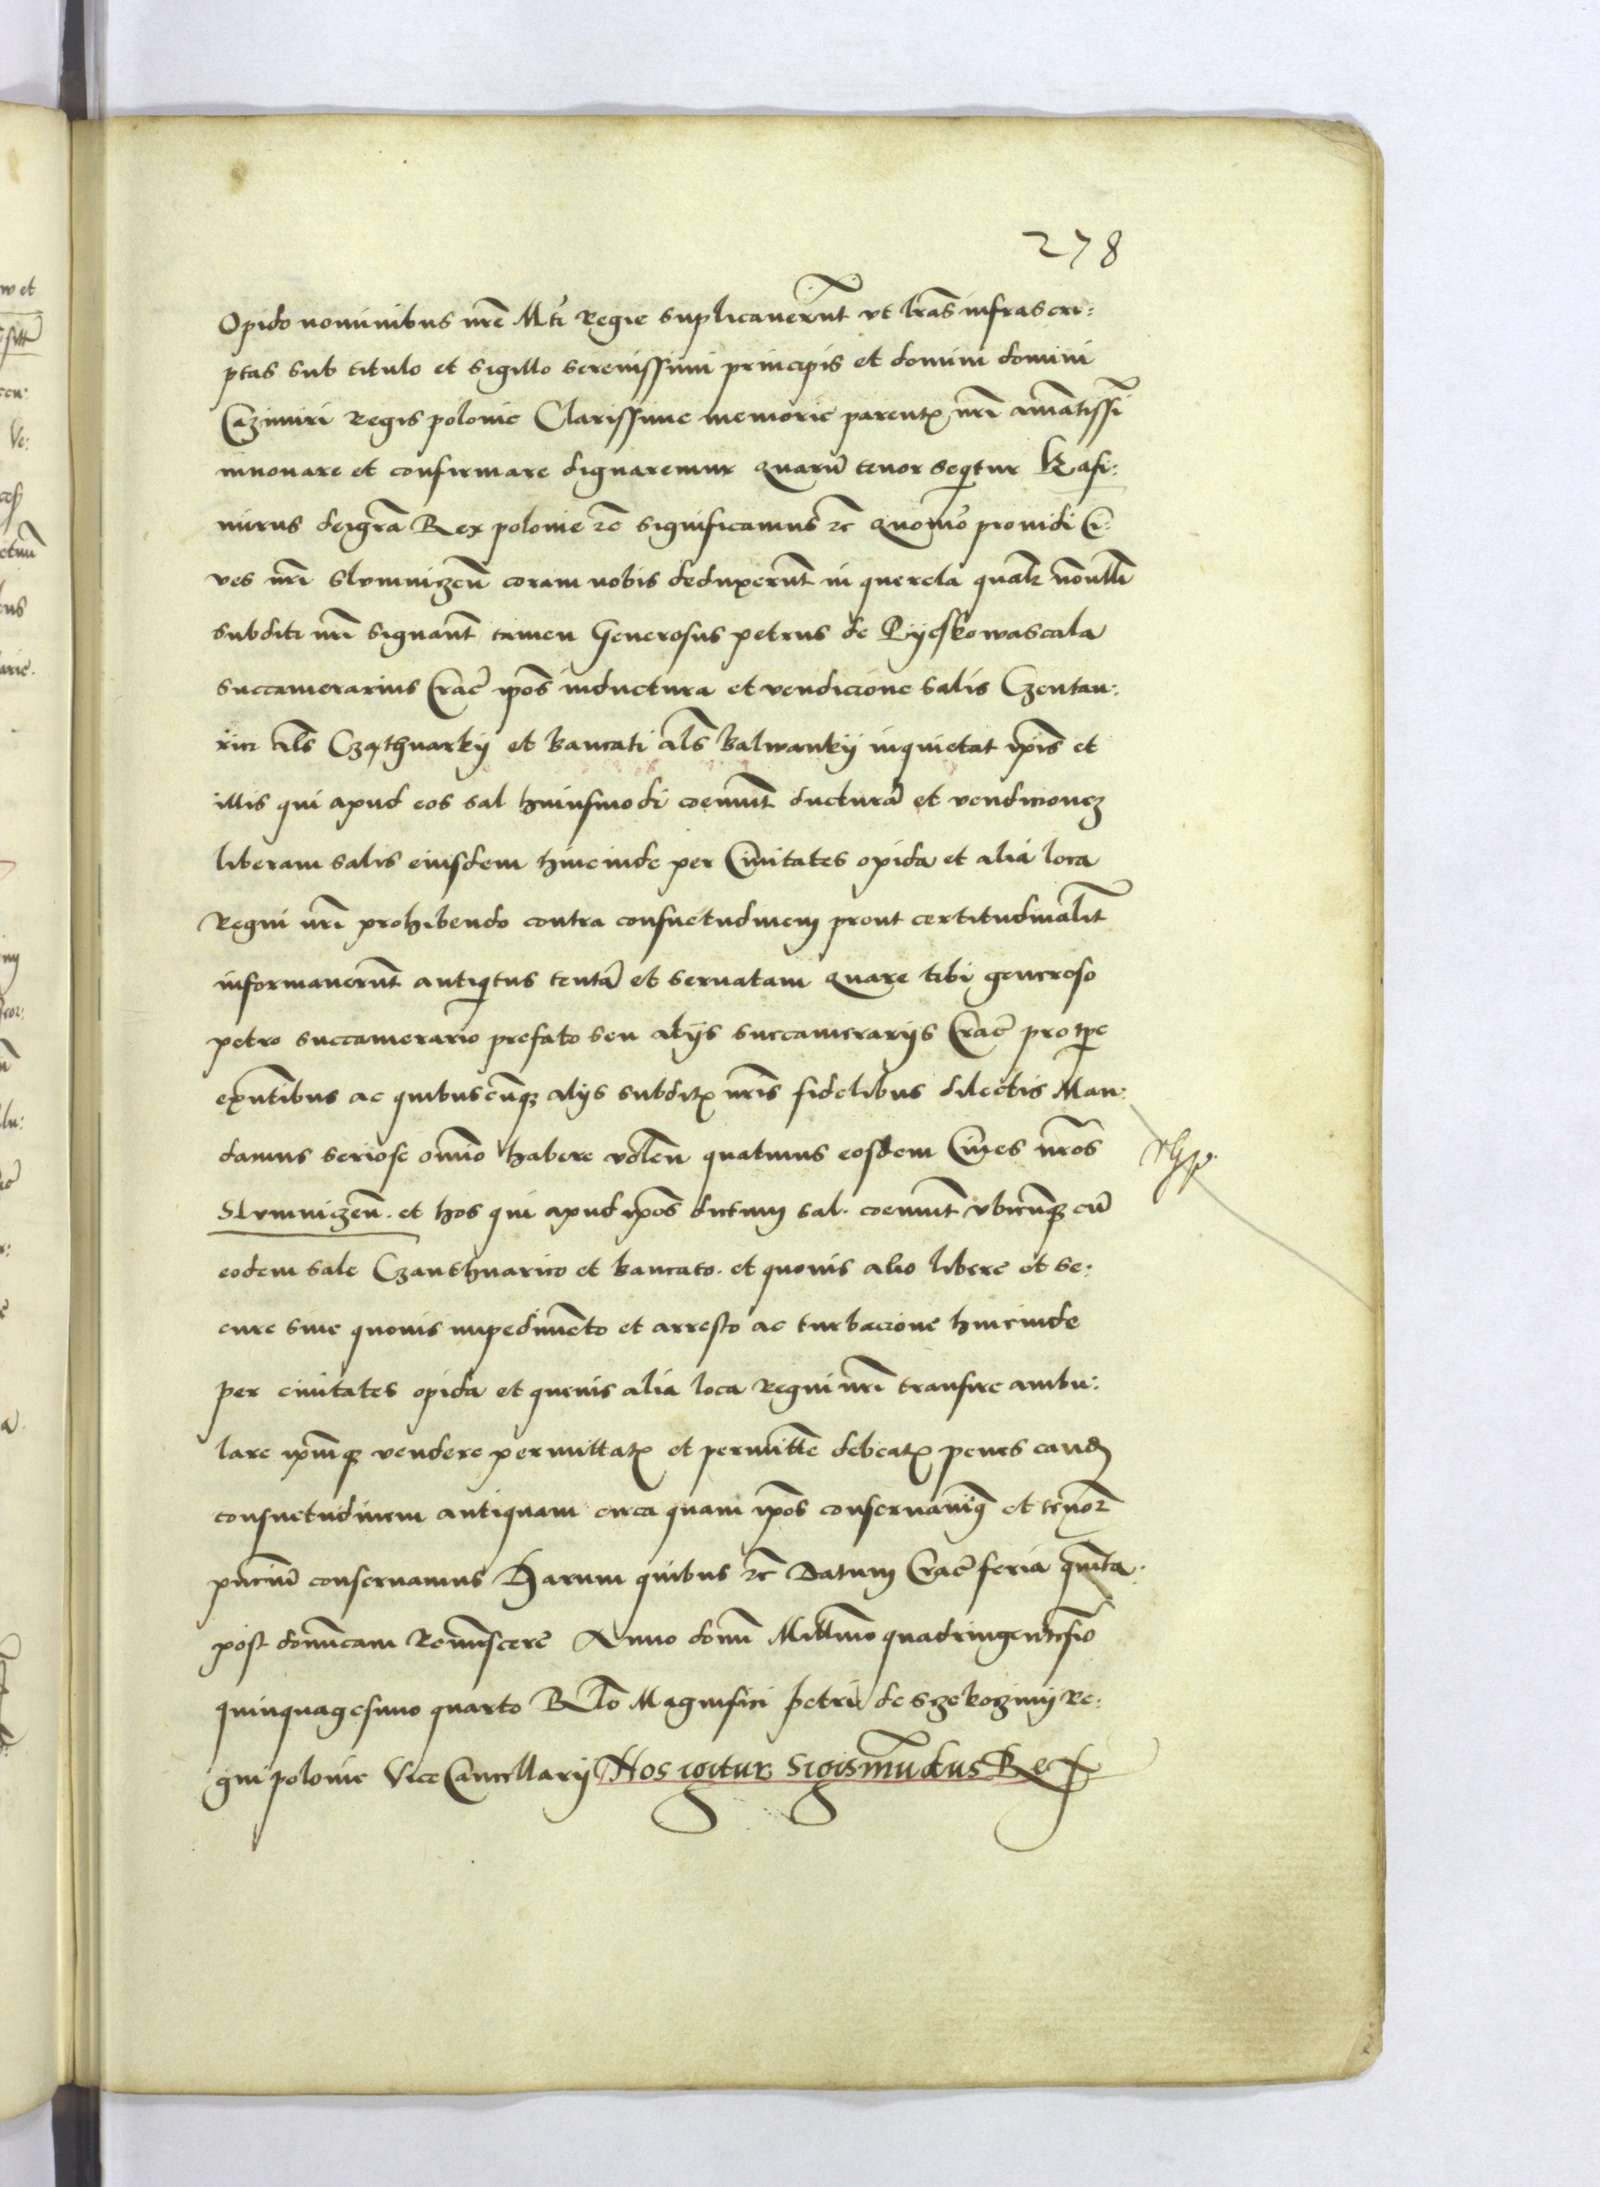 278
Opido nominibus nr̃e Mti Regie suplicauerũt vt lrãs infrascri:
ptas sub titulo et sigillo serenissimi principis et domini domini
Cazimiri Regis polonie Clarissime memorie parentꝭ nr̃i amãtissi
innouare et confirmare dignaremur Quarũ tenor seqtur Kasi:
mirus deigrã Rex polonie ⁊c̃ significamus ⁊c̃ Quomo prouidi Ci:
ues nr̃i Slomnizeñ coram nobis deduxerũt in querela qualr̃ nonulli
subditi nr̃i signãnt tamen Generosus petrus de Pyeskowascala
succamerarius Crac̃ ip̃os inductura et vendicione salis Czentau:
rici al̃s Czathuarky et bancati al̃s balwanky inquietat ip̃is et
illis qui apud eos sal huiusmodi coemũt ducturã et vendicionez
liberam salis eiusdem hincinde per Ciuitates opida et alia loca
Regni nr̃i prohibendo contra consuetudinem prout certitudinalit̃
informauerũt antiqtus tentã et seruatam Quare tibi generoso
petro succamerario prefato seu alijs succamerarijs Crac̃ pro tp̃e
exñtibus ac quibuscũqꝫ alijs subditꝭ nr̃is fidelibus dilectis Man:
damus seriose om̃io habere voleñ quatinus eosdem Ciues nrõs
Slomnizeñ. et hos qui apud ip̃os dictum sal. coemũt vbicũqꝫ cũ
eodem sale Czanthuarico et bancato. et quouis alio libere et se:
cure sine quouis impedimẽto et arresto ac turbacione hincinde
per ciuitates opida et queuis alia loca Regni nr̃i transire ambu:
lare ip̃mqꝫ vendere permittatꝭ et permittẽ debeatꝭ penes eandẽ
consuetudinem antiquam circa quam ip̃os conseruauimꝰ et tenor̃
pñciũ conseruamus Harum quibus ⁊c̃ Datum Crac̃ feria quĩta
post domĩcam Reminiscere Anno domĩ Millmo quadringentesio
quinquagesimo quarto Rl̃o Magnifici petri de Szekozini Re:
gni polonie ViceCancellarij Nos igitur Sigismũdus Rex